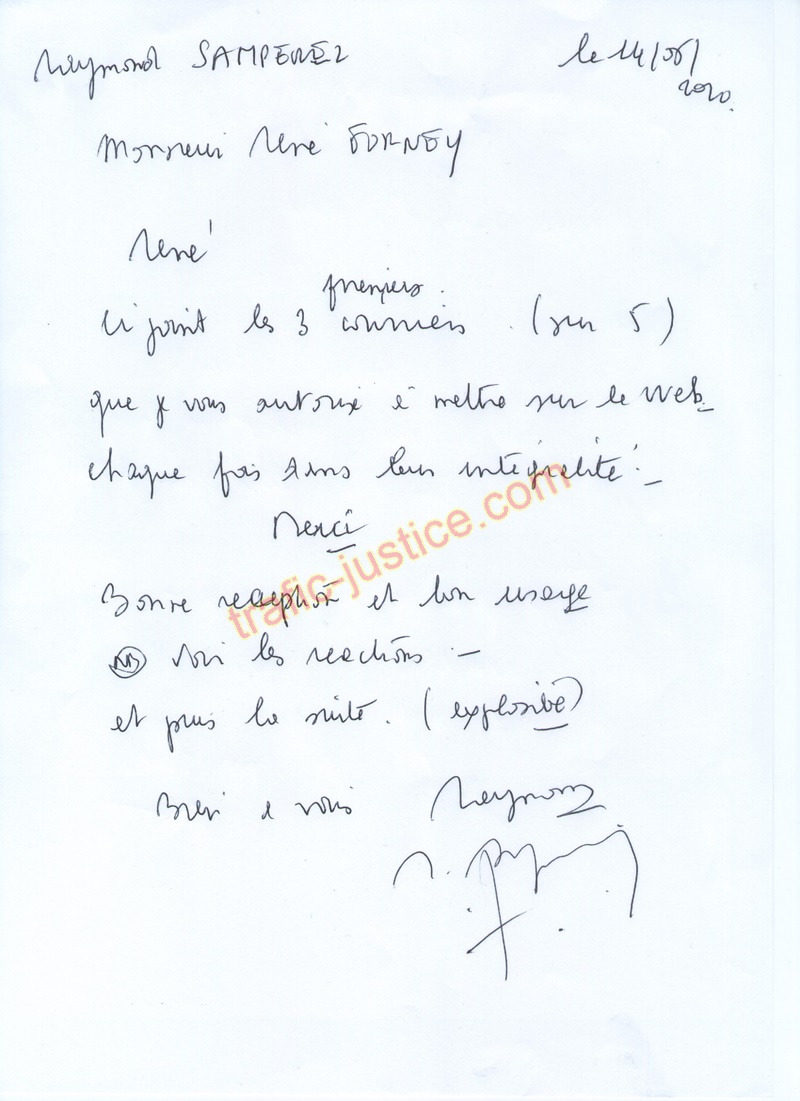 Raymond SAMPEREZ le 14/06/
2020.
Monsieur René FORNEY
René
premiers.
Ci joint les 3 courriers. (sur 5)
que je vous autorise à mettre sur le web.
chaque fois dans leur intégralité.
Merci
trafic-justice.com
Bonne reception et bon usage
NB voir les reactions.
et puis la suite. (explosive)
Bien à vous Raymond